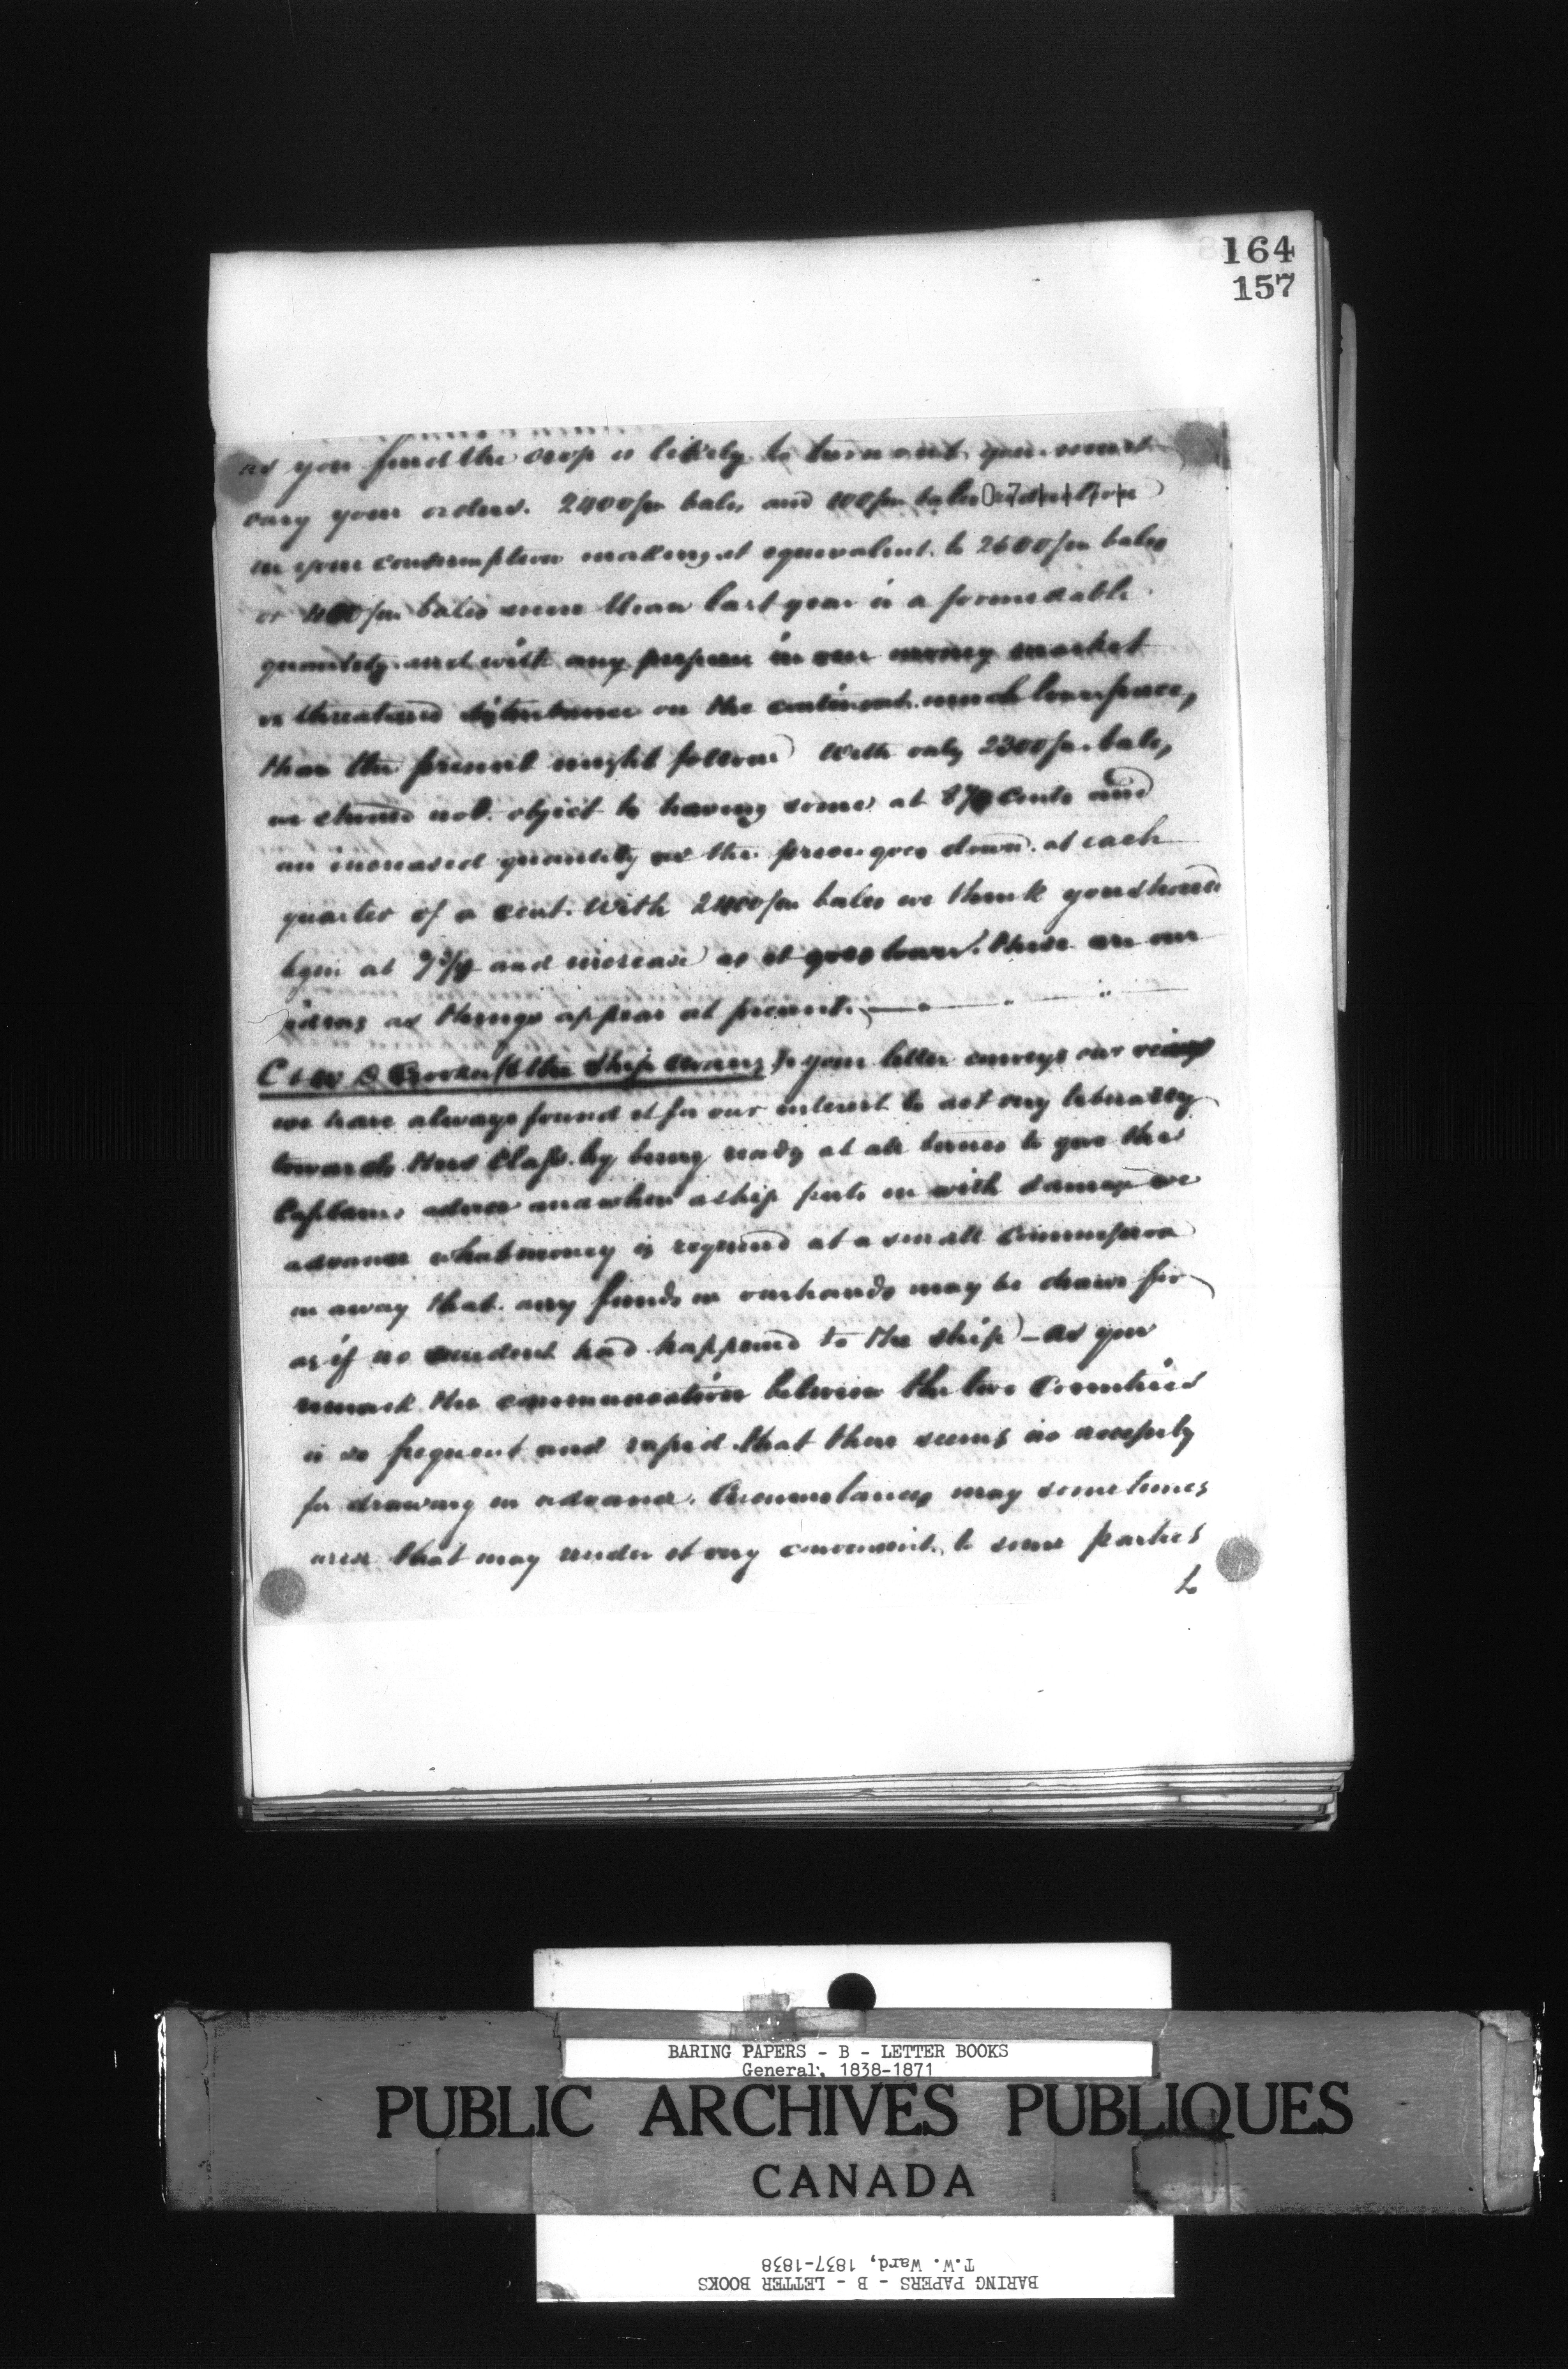 164
157
as you find the crop is likely to turn out you must
vary your orders. 2400/m bales and 100/m bales
07447+
in your consumption making it equivalent to 2500/m bales
or 400/m bales more than last year is a formidable
quantity and with any pressure in our money market
or threatened disturbance on the continent much lower prices,
than the present might follow With only 2300/m bales,
we should not object to having some at cents and
an increased quantity as the price goes down at each
quarter of a cent. With 2400/m bales we think you should
begin at and increase as it goes lower. these are our
ideas as things appear at present.
C & W D Crooker (& the Ship ) your letter conveys our views
we have always found it for our interest to act very liberally
towards this Class by being ready at all times to give the
Captains advice and when a ship puts in with damage we
advance what money is required at a small commission
in a way that any funds in our hands may be drawn for
as if no accident had happened to the ship – as you
remark the communication between the two Countries
is so frequent and rapid that there seems no necessity
for drawing in advance. Circumstances may sometimes
arise that may render it very convenient to some parties
BARING PAPERS - B - LETTER BOOKS
General, 1838-1871
PUBLIC ARCHIVES PUBLIQUES
CANADA
BARING PAPERS - B - LETTER BOOKS
T.W. Ward, 1837-1838